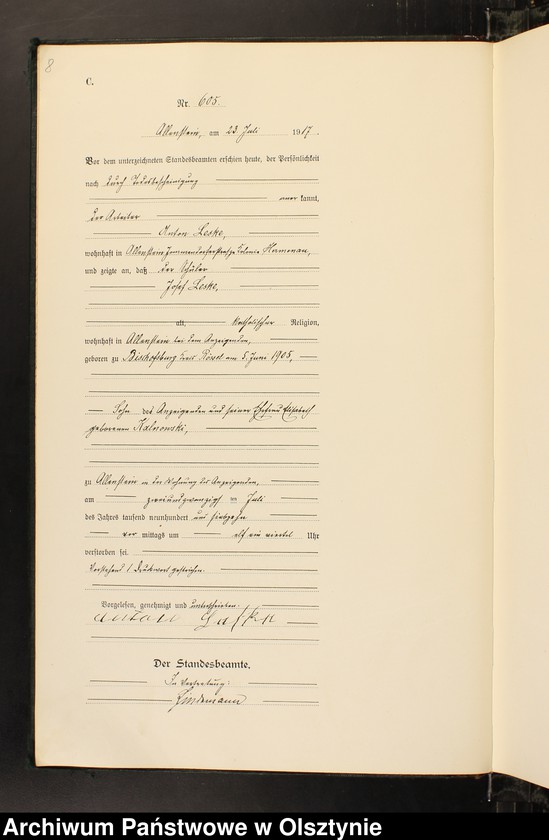 8
C.
Nr. 605.
Allenstein, am 23 Juli 1917.
Vor dem unterzeichneten Standesbeamten erschien heute, der Persönlichkeit
nach durch Todesbescheinigung
aner kannt,
der Arbeiter
Anton Leske,
wohnhaft in Allenstein Kolonie
und zeigte an, daß der Schüler
Josef Leske,
alt, katholischer Religion,
wohnhaft in Allenstein bei dem Anzeigenden,
geboren zu Bischofsburg Kreis Rössel am 5. Juni 1905,
Sohn des Anzeigenden und seiner Ehefrau Elisabeth
geborenen Kalnowski,
zu Allenstein in der Wohnung des Anzeigenden,
am zweiundzwanzigst en Juli
des Jahres tausend neunhundert und siebzehn
vor mittags um elf ein viertel Uhr
verstorben sei.
Vorstehend 1 Druckwort gestrichen.
Vorgelesen, genehmigt und unterschrieben.
Anton Laskn
Der Standesbeamte.
In Vertretung:
Lindemann
Archiwum Państwowe w Olsztynie